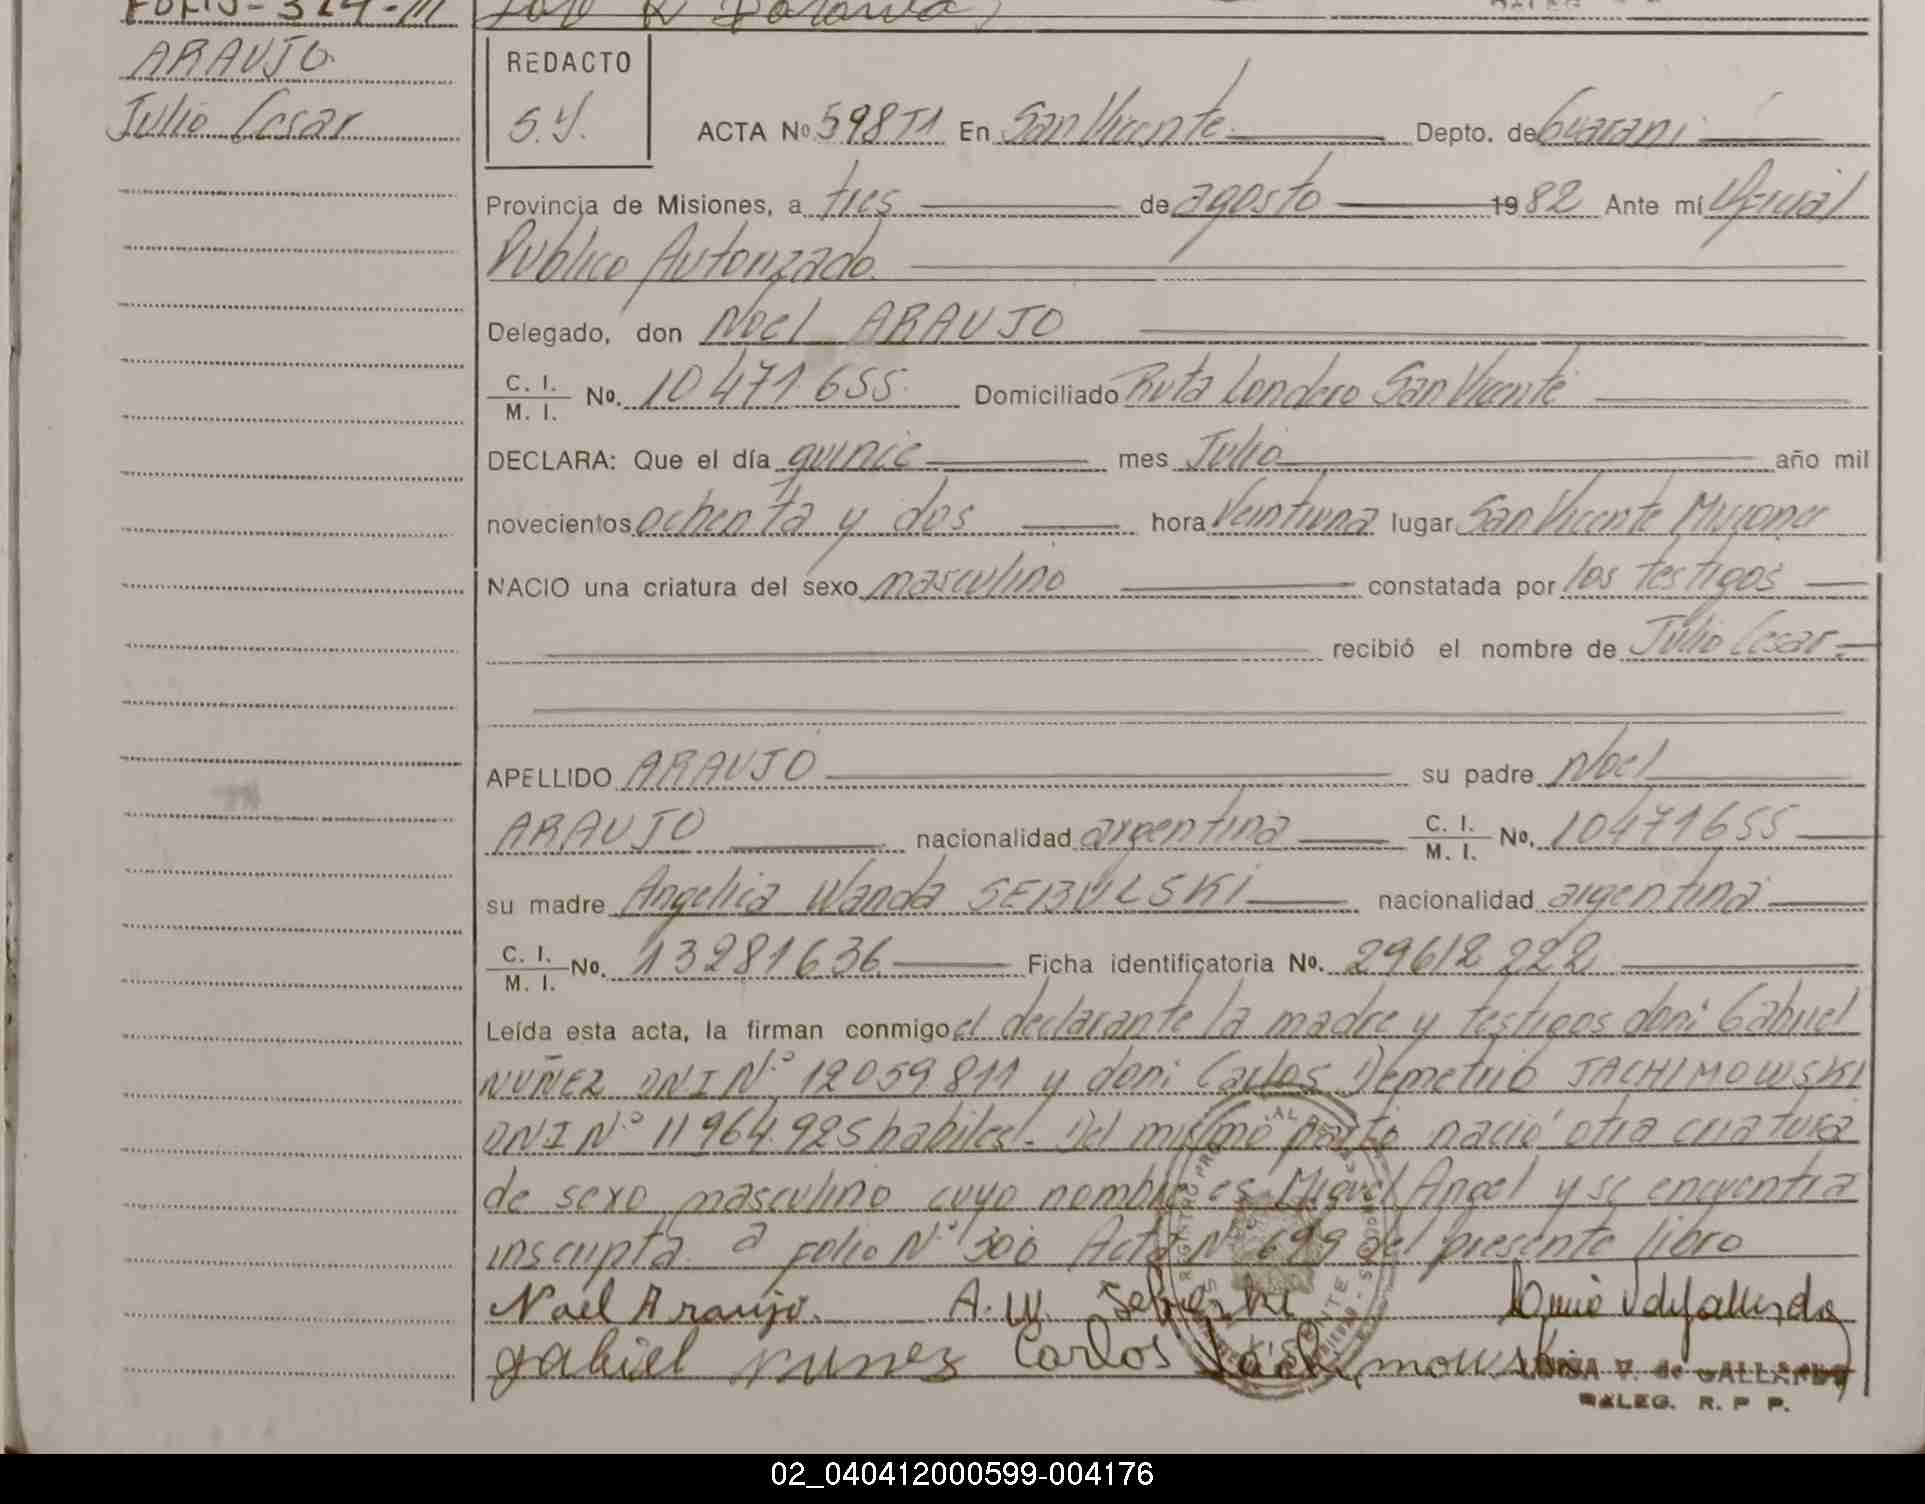 ARAUJO
Julio Cesar
REDACTO
S.Y.
ACTA No 598 T1 En San Vicente Depto. de Guarani
Provincia de Misiones, a tres de agosto 1982 Ante mí Oficial
Publico Autorizado
Delegado, don Noel ARAUJO
C. I. / M. I. No. 10 471 655 Domiciliado Ruta Londero San Vicente
DECLARA: Que el día quince mes Julio año mil
novecientos ochenta y dos hora Veintiuna lugar San Vicente Misiones
NACIO una criatura del sexo masculino constatada por los testigos
recibió el nombre de Julio Cesar.-
APELLIDO ARAUJO su padre Noel
ARAUJO nacionalidad argentina C. I. / M. I. No. 10471655
su madre Angelica Wanda SEBULSKI nacionalidad argentina
C. I. / M. I. No. 13281636 Ficha identificatoria No. 29612 222
Leída esta acta, la firman conmigo el declarante la madre y testigos don: Gabriel
NUÑEZ DNI N° 12059811 y don: Carlos Demetrio JACHIMOWSKI
DNI N° 11964.925 habiles!- Del mismo parto nació otra criatura
de sexo masculino cuyo nombre es Miguel Angel y se encuentra
inscripta a folio N° 300 Acta N° 699 del presente libro
Noel Araujo. A. W.
gabriel nunez Carlos Jachimowski
LUISA V. de GALLARDO
DELEG. R. P P.
02_040412000599-004176